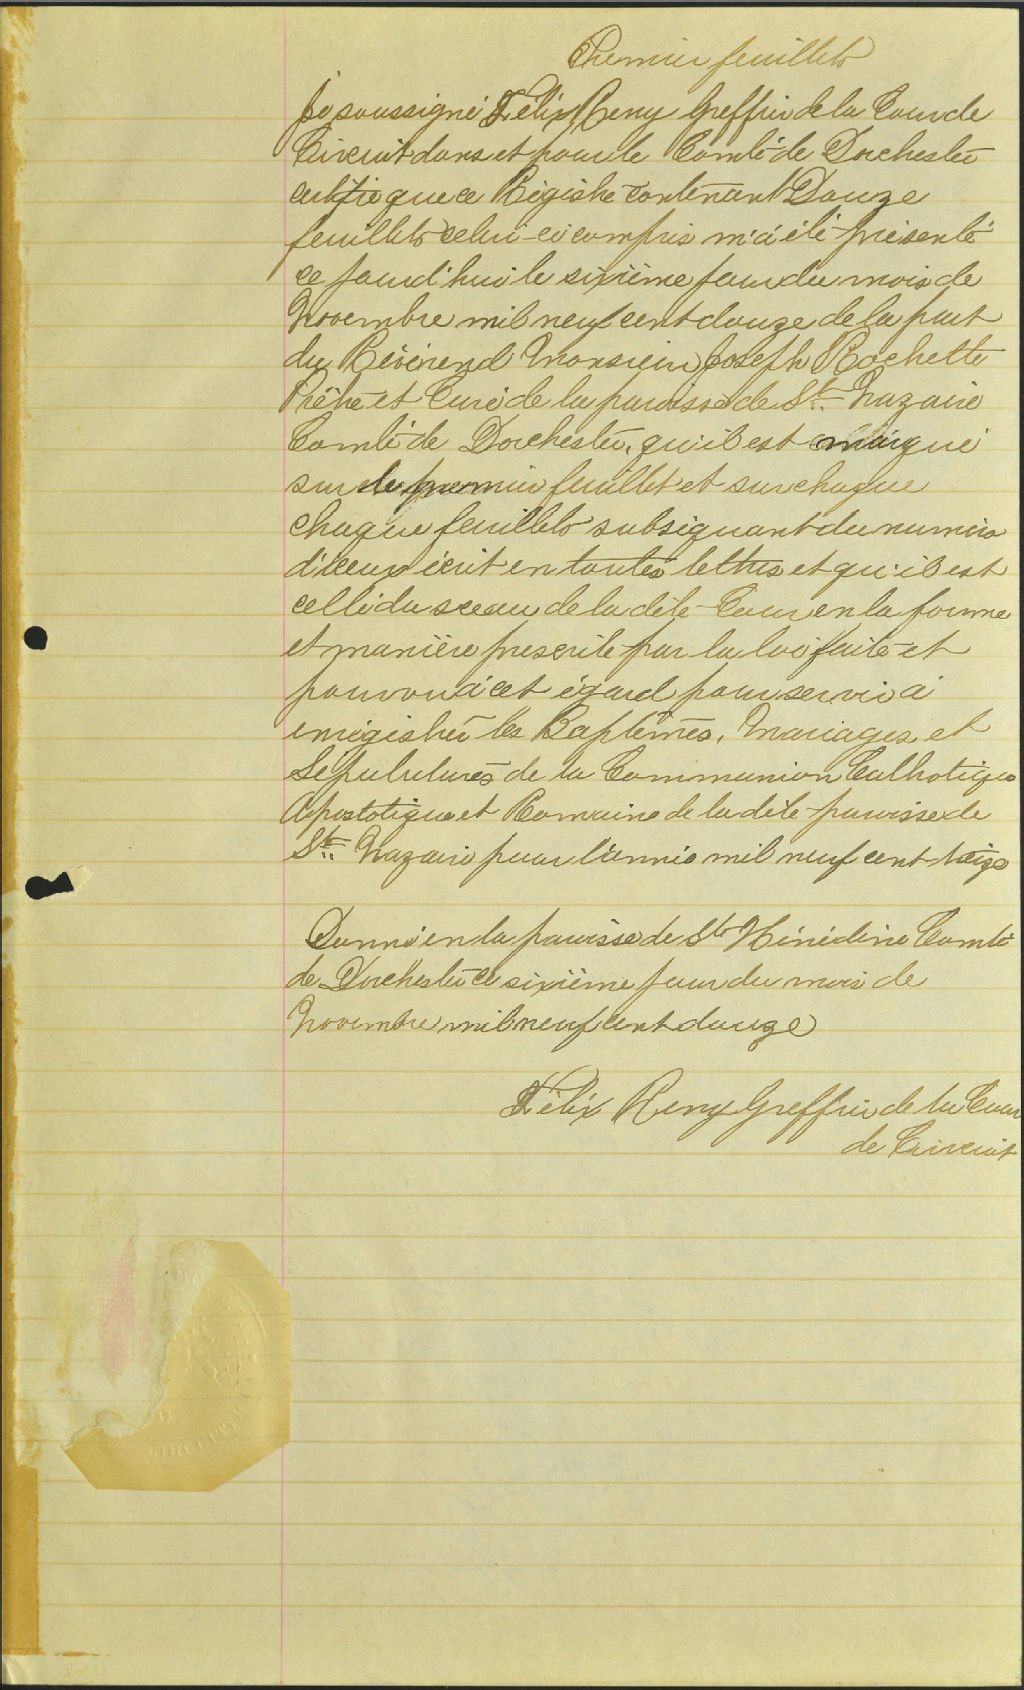 Premier feuillet
Je soussigné Félix Remy Greffier de la Cour de
Circuit dans et pour le Comté de Dorchester
certifie que ce Régistre contenant Douze
feuillets celui-ci compris m'a été présenté
ce jourd'hui le sixième jour du mois de
Novembre mil neuf cent douze de la part
du Révérend Monsieur Joseph Rochette
Prêtre et Curé de la paroisse de St. Nazaire
Comté de Dorchester, qu'il est marqué
sur le premier feuillet et sur chaque
chaque feuillet subséquant du numéro
d'iceux écrit en toutes lettres et qu'il est
cellé du sceau de la dite Cour en la forme
et manière prescrite par la loi faite et
pourvu à cet égard pour servir à
enrégistrer les Baptêmes, Mariages et
Sépultures de la Communion Catholique
Apostolique et Romaine de la dite paroisse de
St. Nazaire pour l'année mil neuf cent treize
Donné en la paroisse de Ste Hénédine Comté
de Dorchester ce sixième jour du mois de
Novembre mil neuf cent douze
Félix Remy Greffier de la Cour
de Circuit